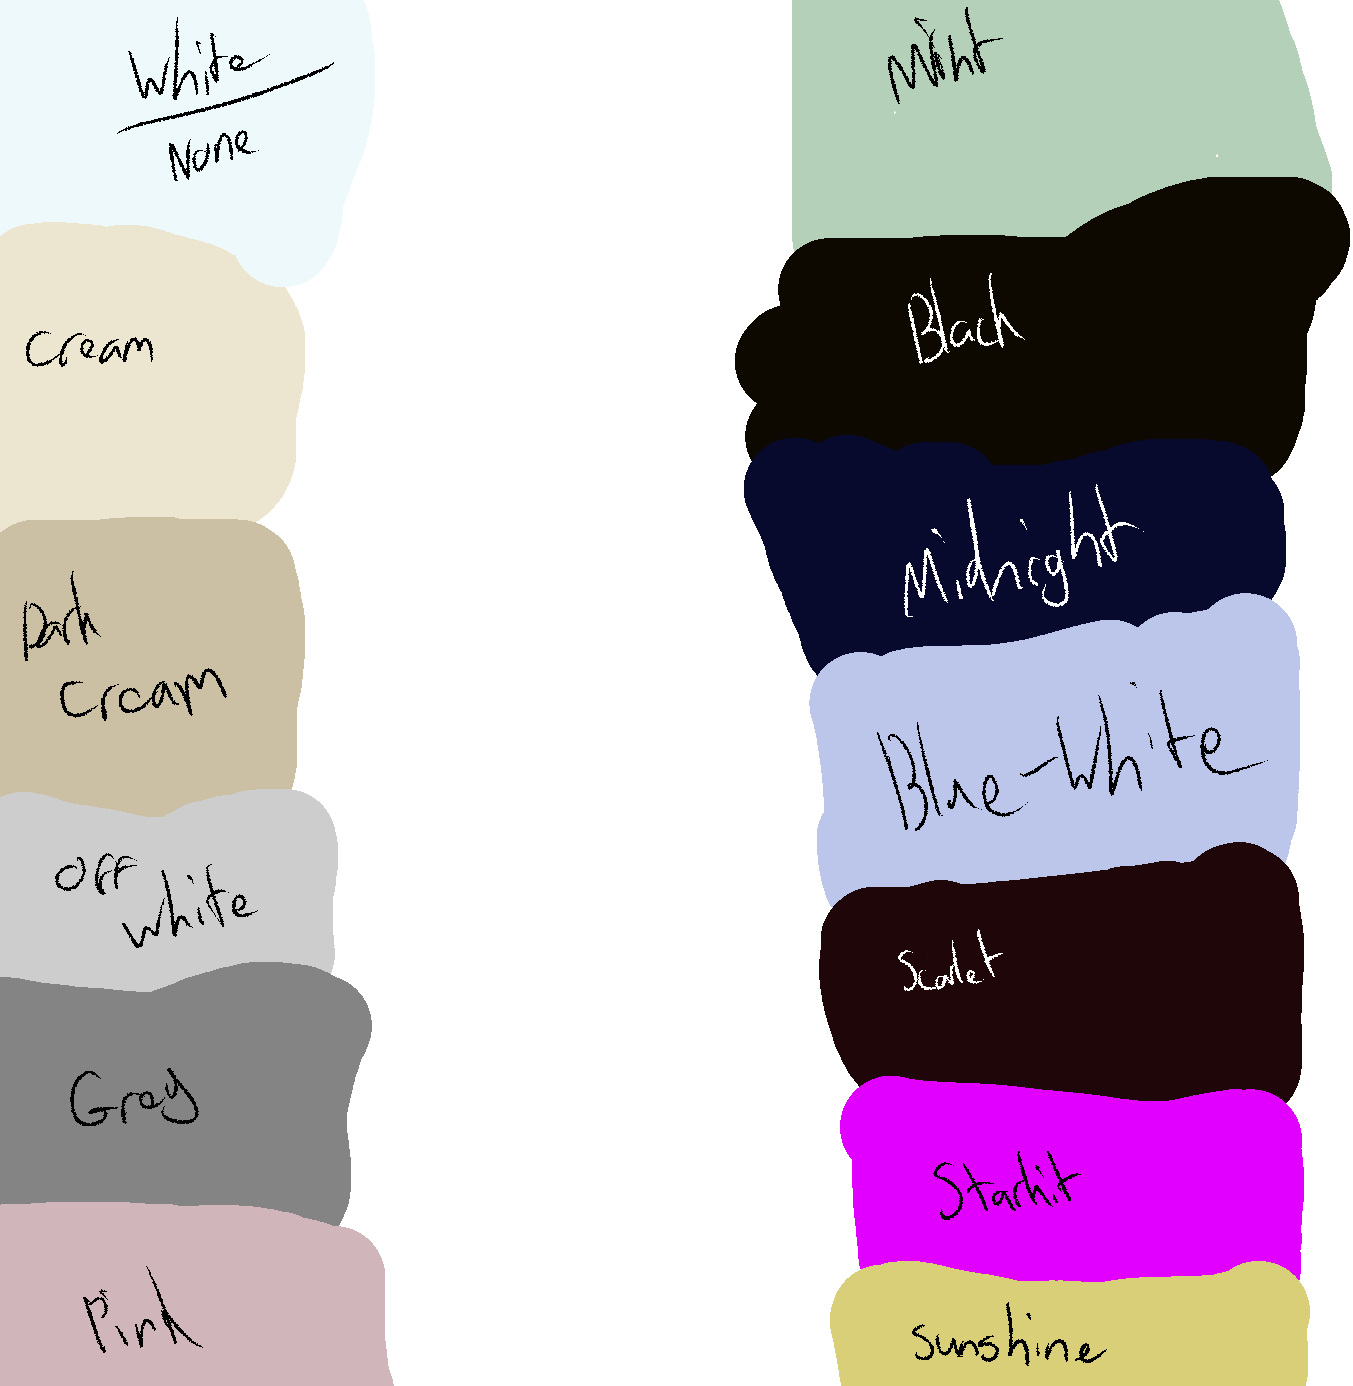 White
None
Cream
Dark
Cream
Off
White
Grey
Pink
Mint
Black
Midnight
Blue-White
Scarlet
Starhit
Sunshine